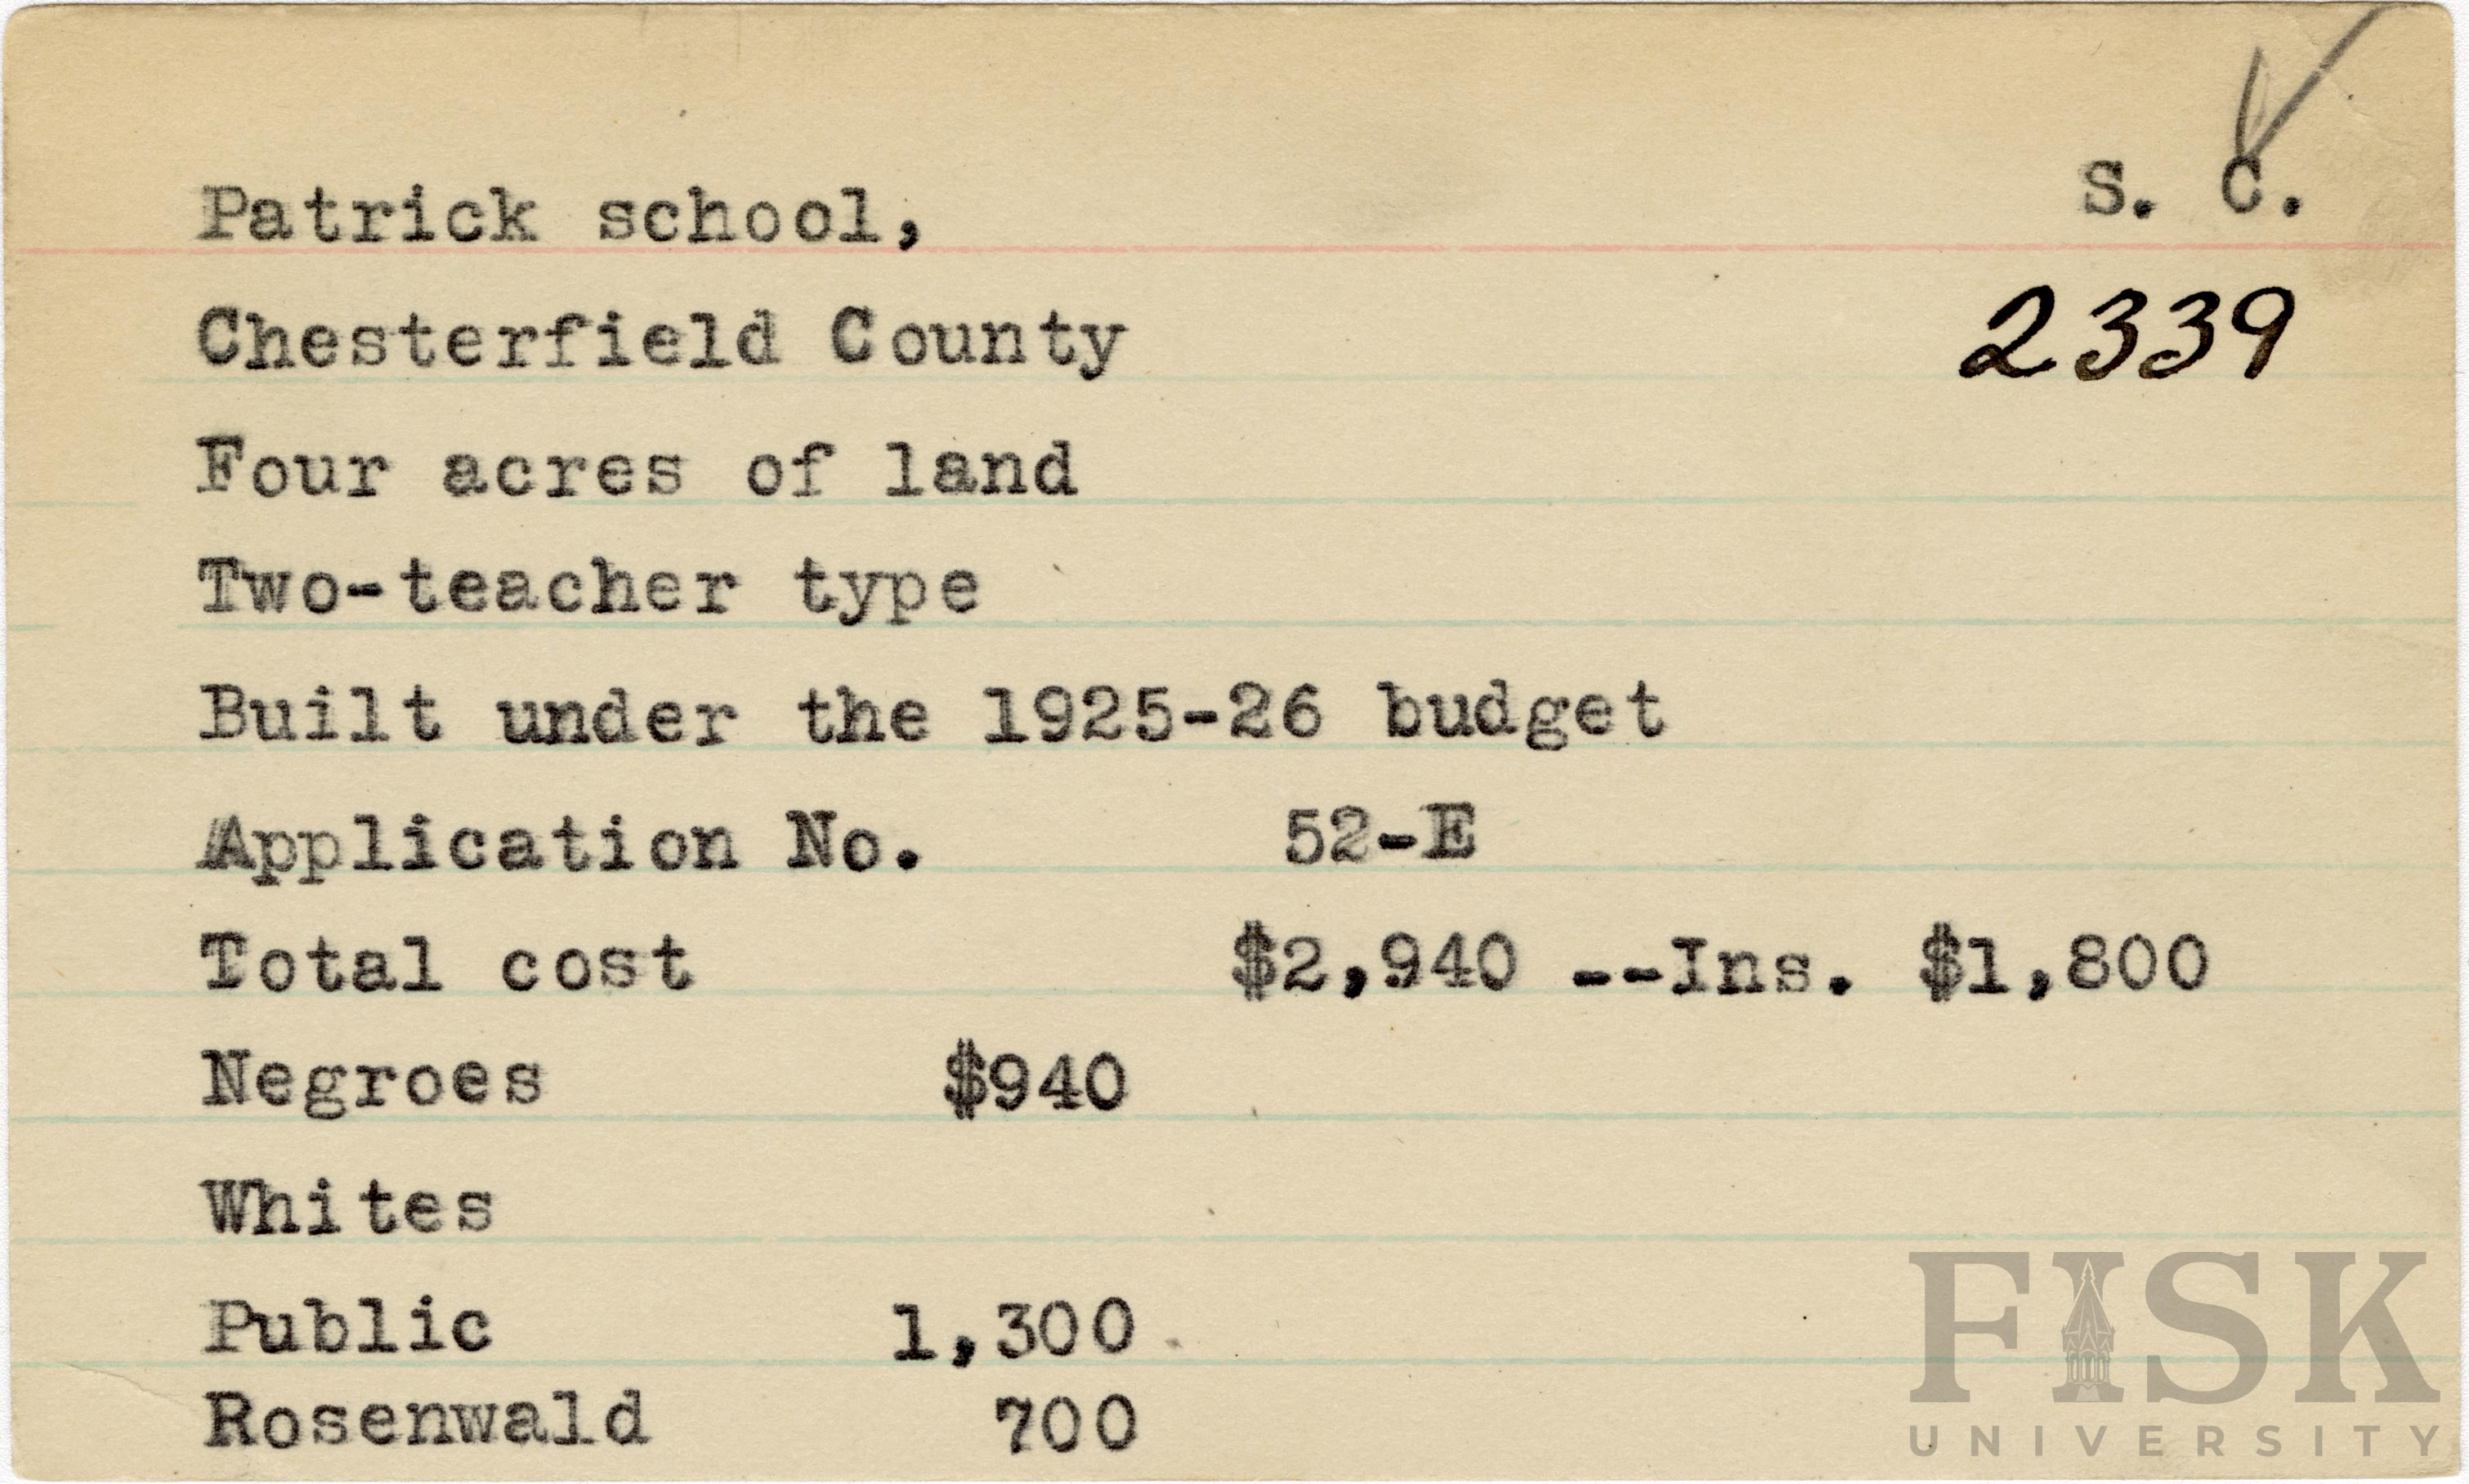 Patrick school, S. C.
Chesterfield County 2339
Four acres of land
Two-teacher type
Built under the 1925-26 budget
Application No. 52-E
Total cost $2,940 --Ins. $1,800
Negroes $940
Whites
Public 1,300
Rosenwald 700
FISK
UNIVERSITY